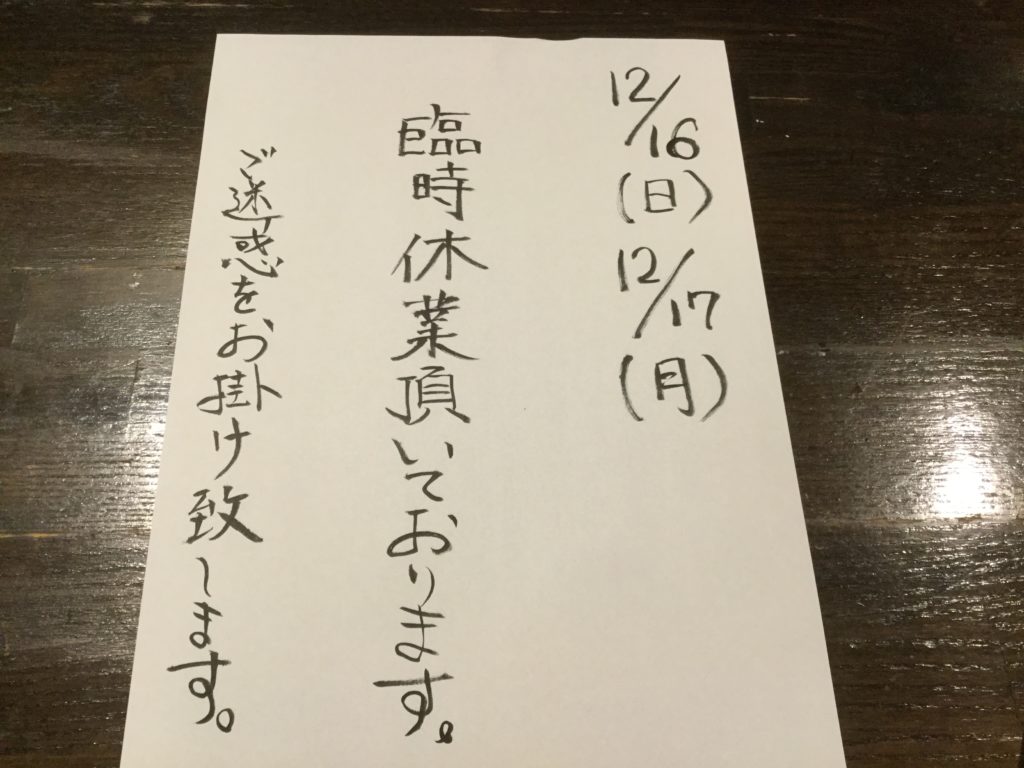 12/16(日)12/17(月)
臨時休業頂いております。
ご迷惑をお掛け致します。